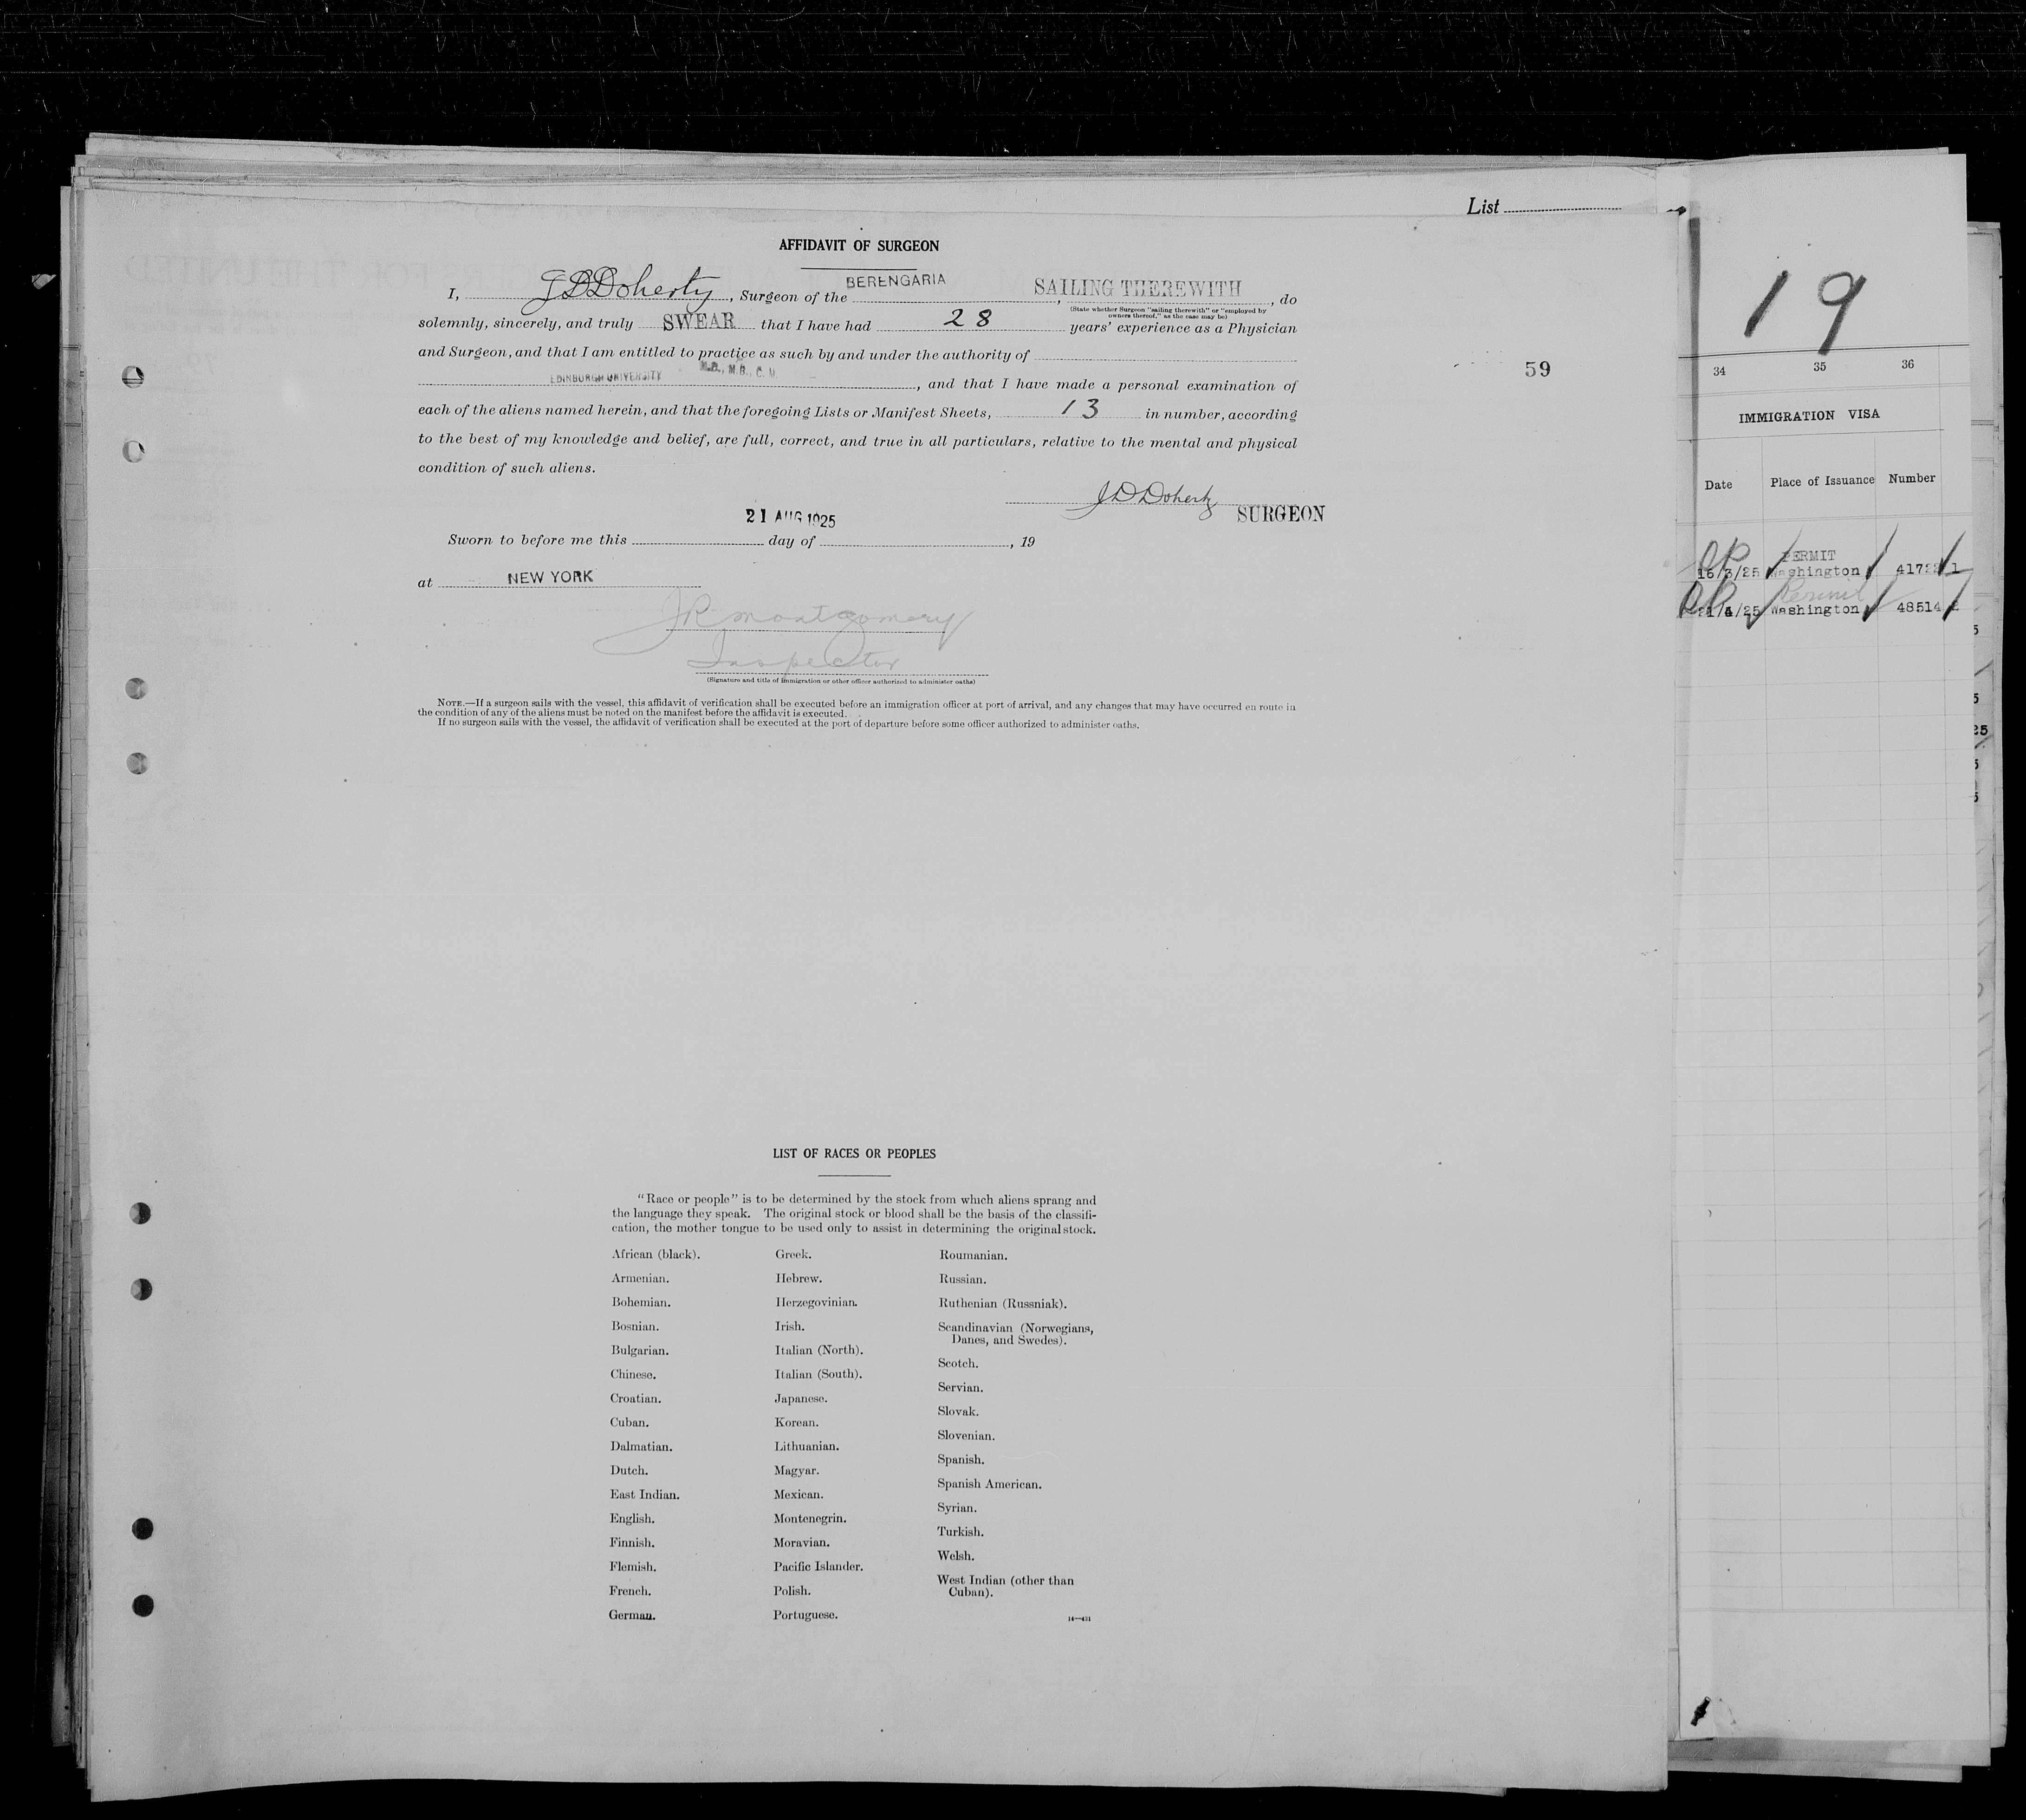 List
AFFIDAVIT OF SURGEON
I, J D Doherty, Surgeon of the BERENGARIA, SAILING THEREWITH, do
(State whether Surgeon "sailing therewith" or "employed by
owners thereof," as the case may be)
solemnly, sincerely, and truly SWEAR that I have had 28 years' experience as a Physician
and Surgeon, and that I am entitled to practice as such by and under the authority of
EDINBURGH UNIVERSITY, and that I have made a personal examination of
each of the aliens named herein, and that the foregoing Lists or Manifest Sheets, 13 in number, according
to the best of my knowledge and belief, are full, correct, and true in all particulars, relative to the mental and physical
condition of such aliens.
J D Doherty SURGEON
21 AUG 1925
Sworn to before me this day of , 19
at NEW YORK
J R Montgomery
Inspector
(Signature and title of immigration or other officer authorized to administer oaths)
NOTE.—If a surgeon sails with the vessel, this affidavit of verification shall be executed before an immigration officer at port of arrival, and any changes that may have occurred en route in
the condition of any of the aliens must be noted on the manifest before the affidavit is executed.
If no surgeon sails with the vessel, the affidavit of verification shall be executed at the port of departure before some officer authorized to administer oaths.
59
LIST OF RACES OR PEOPLES
"Race or people" is to be determined by the stock from which aliens sprang and
the language they speak. The original stock or blood shall be the basis of the classifi-
cation, the mother tongue to be used only to assist in determining the original stock.
African (black).
Armenian.
Bohemian.
Bosnian.
Bulgarian.
Chinese.
Croatian.
Cuban.
Dalmatian.
Dutch.
East Indian.
English.
Finnish.
Flemish.
French.
German.
Greek.
Hebrew.
Herzegovinian.
Irish.
Italian (North).
Italian (South).
Japanese.
Korean.
Lithuanian.
Magyar.
Mexican.
Montenegrin.
Moravian.
Pacific Islander.
Polish.
Portuguese.
Roumanian.
Russian.
Ruthenian (Russniak).
Scandinavian (Norwegians,
Danes, and Swedes).
Scotch.
Servian.
Slovak.
Slovenian.
Spanish.
Spanish American.
Syrian.
Turkish.
Welsh.
West Indian (other than
Cuban).
14—431
19
34 35 36
IMMIGRATION VISA
Date Place of Issuance Number
PERMIT
16/3/25 Washington
Permit
Washington 48514